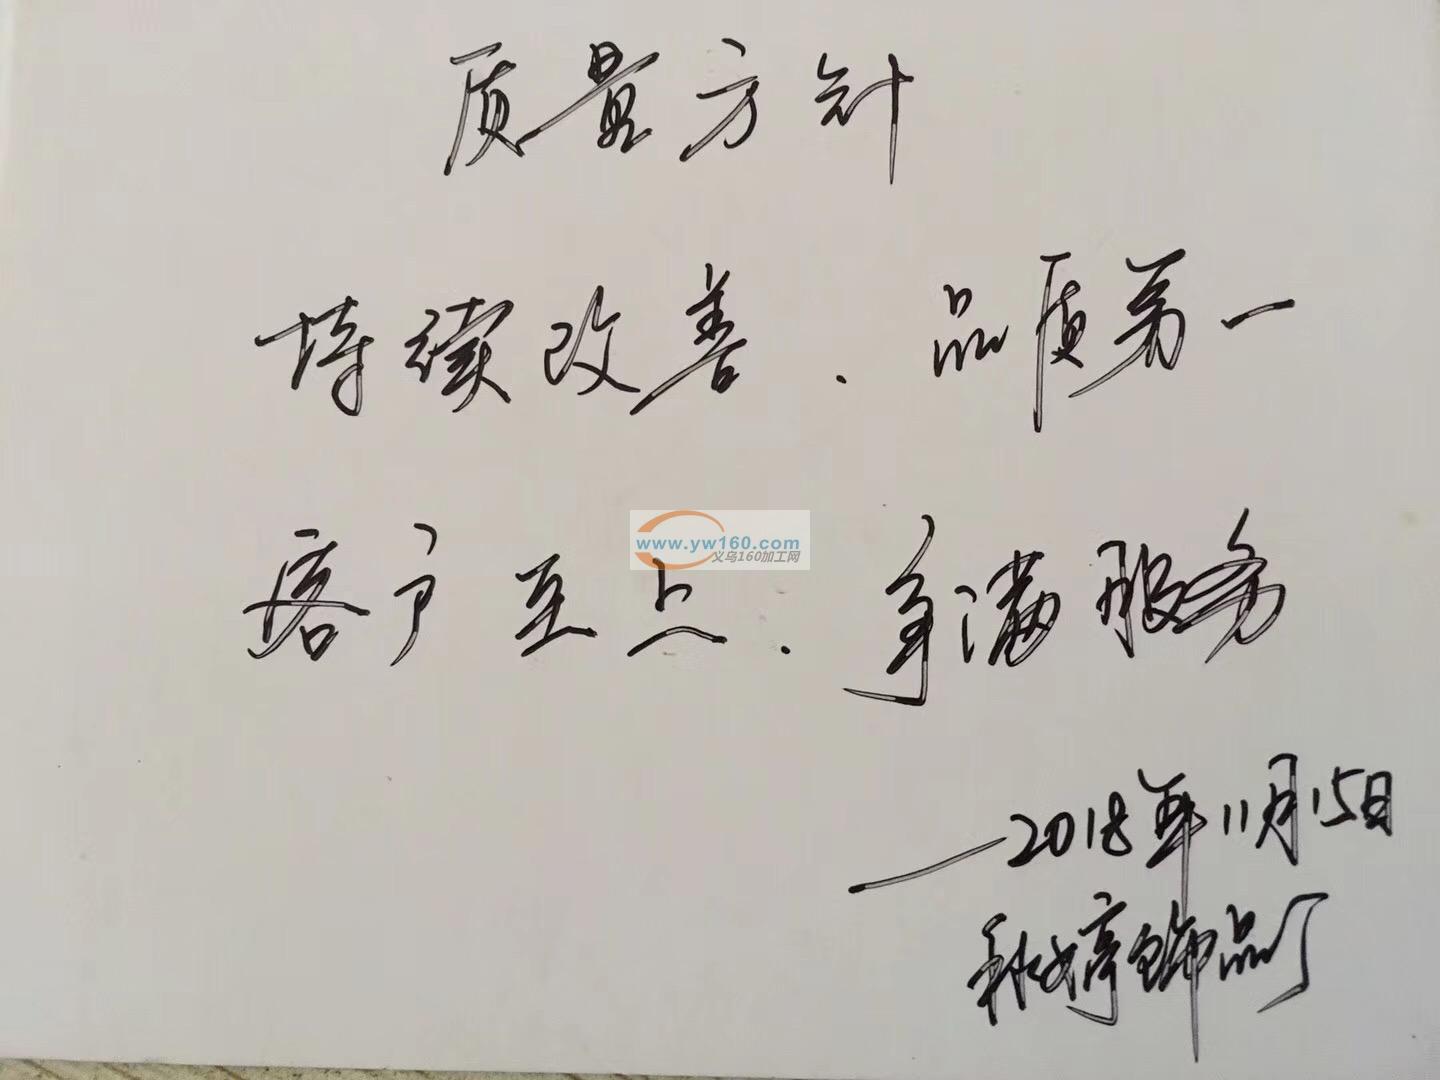 质量方针
持续改善.品质第一
www.yw160.com
义乌160加工网
客户至上.争满服务
—2018年11月15日
秋婷饰品厂